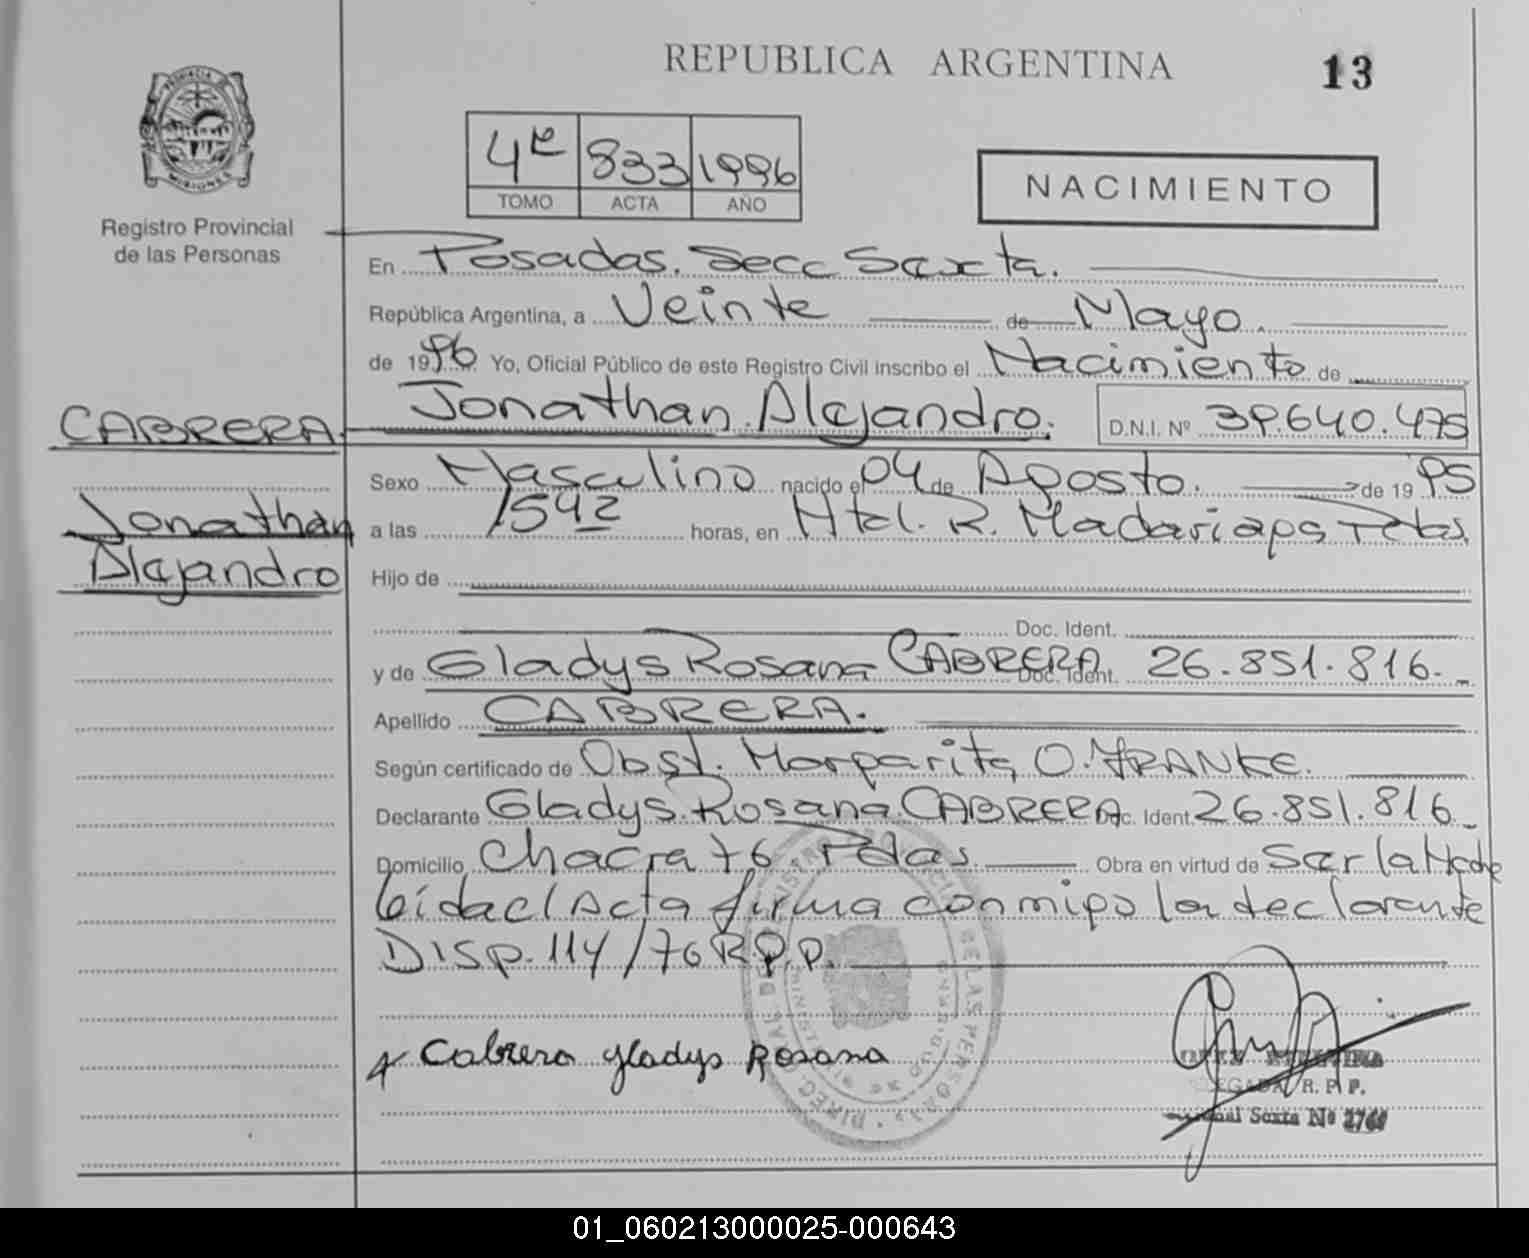 REPUBLICA ARGENTINA
13
PROVINCIA DE
MISIONES
Registro Provincial
de las Personas
4º 833 1996
TOMO ACTA AÑO
NACIMIENTO
En Posadas. Secc Sexta.
República Argentina, a Veinte de Mayo.
de 1996 Yo, Oficial Público de este Registro Civil inscribo el Nacimiento de
CABRERA Jonathan Alejandro. D.N.I. Nº 39.640.475
Sexo Masculino nacido el 04 de Agosto. de 1995
Jonathan
Alejandro
a las 1542 horas, en Htal. R. Madariaga Pdas.
Hijo de
Doc. Ident.
y de Gladys Rosana CABRERA Doc. Ident. 26.851.816.
Apellido CABRERA.
Según certificado de Obst. Margarita O. FRANKE.
Declarante Gladys Rosana CABRERA Doc. Ident 26.851.816
Domicilio Chacra 76 Pdas. Obra en virtud de Ser la Madre
leída el Acta firma conmigo la declarante
DISP. 114/76 R.P.P.
Cabrera Gladys Rosana
R. P. P.
Sexta Nº
01_060213000025-000643